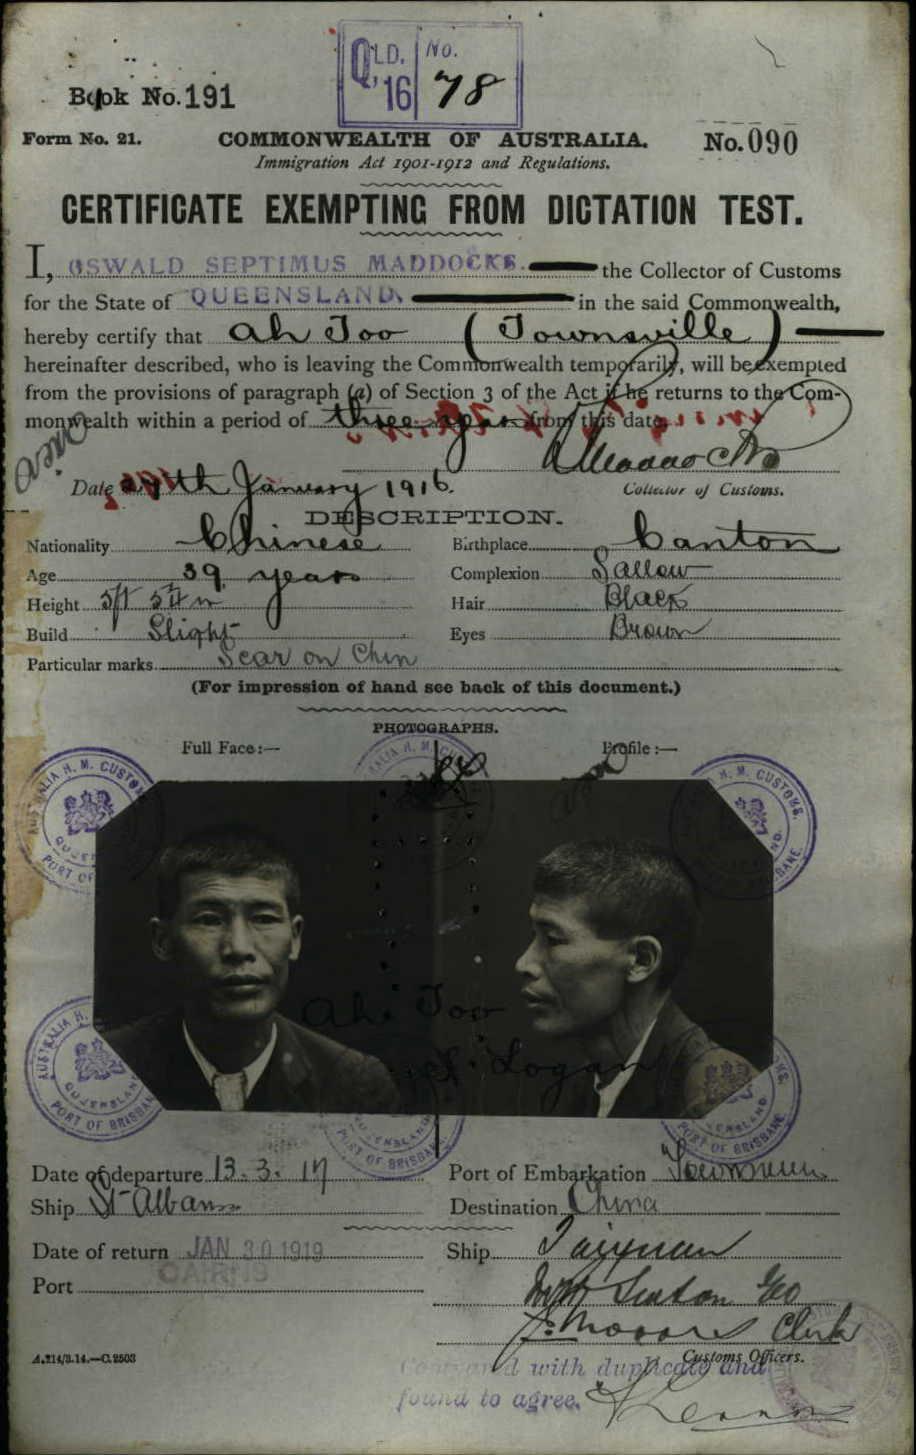 QLD. No.
16 78
Book No. 191
Form No. 21. COMMONWEALTH OF AUSTRALIA. No. 090
Immigration Act 1901-1912 and Regulations.
CERTIFICATE EXEMPTING FROM DICTATION TEST.
I, OSWALD SEPTIMUS MADDOCKS. the Collector of Customs
for the State of QUEENSLAND. in the said Commonwealth,
hereby certify that Ah Too (Townsville)
hereinafter described, who is leaving the Commonwealth temporarily, will be exempted
from the provisions of paragraph (a) of Section 3 of the Act if he returns to the Com-
monwealth within a period of three years from this date.
Date 24th January 1916. Collector of Customs.
DESCRIPTION.
Nationality Chinese Birthplace Canton
Age 39 years Complexion Sallow
Height 5ft Hair Black
Build Slight Eyes Brown
Particular marks Scar on Chin
(For impression of hand see back of this document.)
PHOTOGRAPHS.
Full Face:— Profile:—
AUSTRALIA H. M. CUSTOMS. QUEENSLAND. PORT OF BRISBANE.
Ah Too
Logan
Date of departure 13. 3. 17 Port of Embarkation
Ship St Albans Destination China
Date of return JAN 30 1919 Ship Taiyuan
Port CAIRNS
Clerk
A.214/3.14.—C.2503 Customs Officers.
with duplicate and
found to agree.